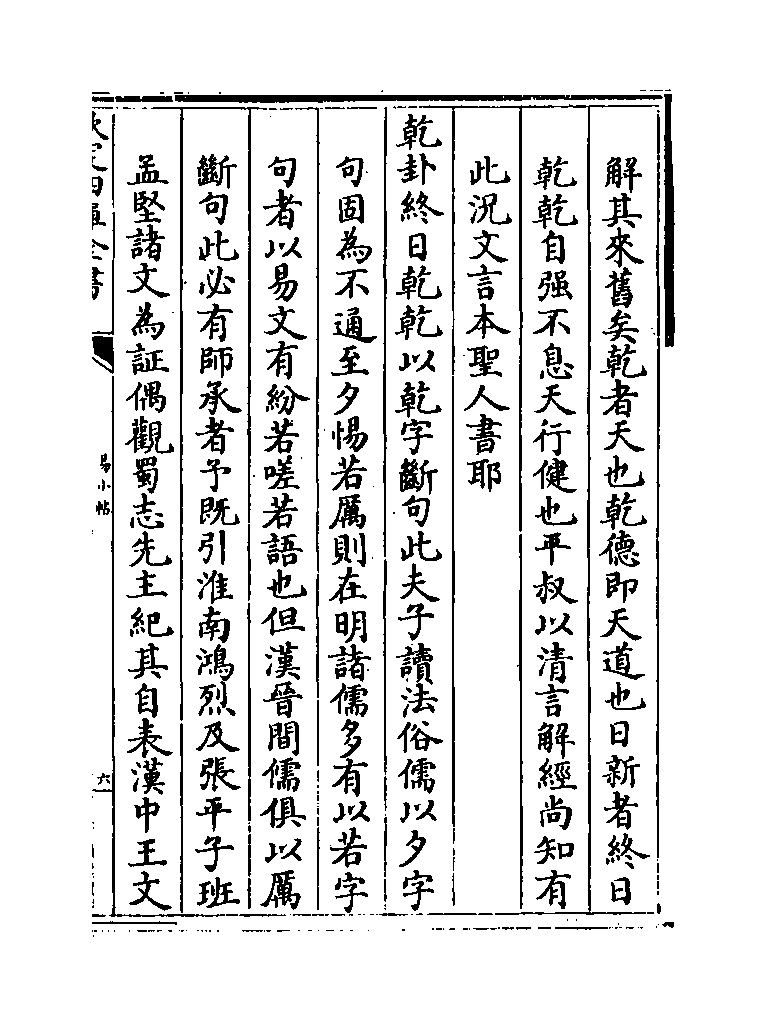 解其來舊矣乾者天也乾德即天道也日新者終日
乾乾自强不息天行健也平叔以清言解經尚知有
此况文言本聖人書耶
乾卦終日乾乾以乾字斷句此夫子讀法俗儒以夕字
句固為不通至夕惕若厲則在明諸儒多有以若字
句者以易文有紛若嗟若語也但漢晉間儒俱以厲
斷句此必有師承者予既引淮南鴻烈及張平子班
孟堅諸文為証偶觀蜀志先主紀其自表漢中王文
欽定四庫全書
易小帖
六